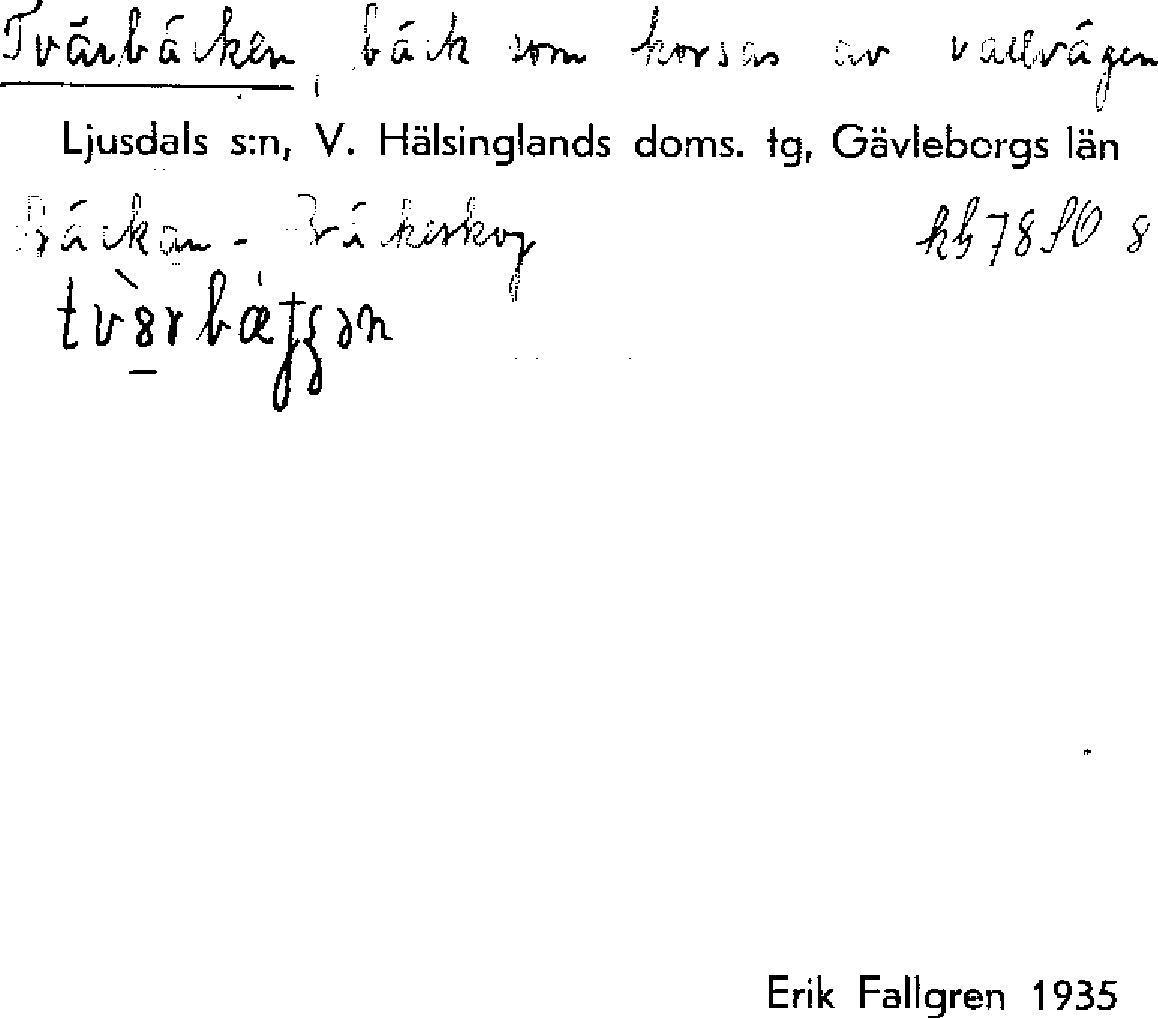 Tvärbäcken, bäck som korsas av vallvägen
Ljusdals s:n, V. Hälsinglands doms. tg, Gävleborgs län
Bäckan - Bräkeskog
Erik Fallgren 1935